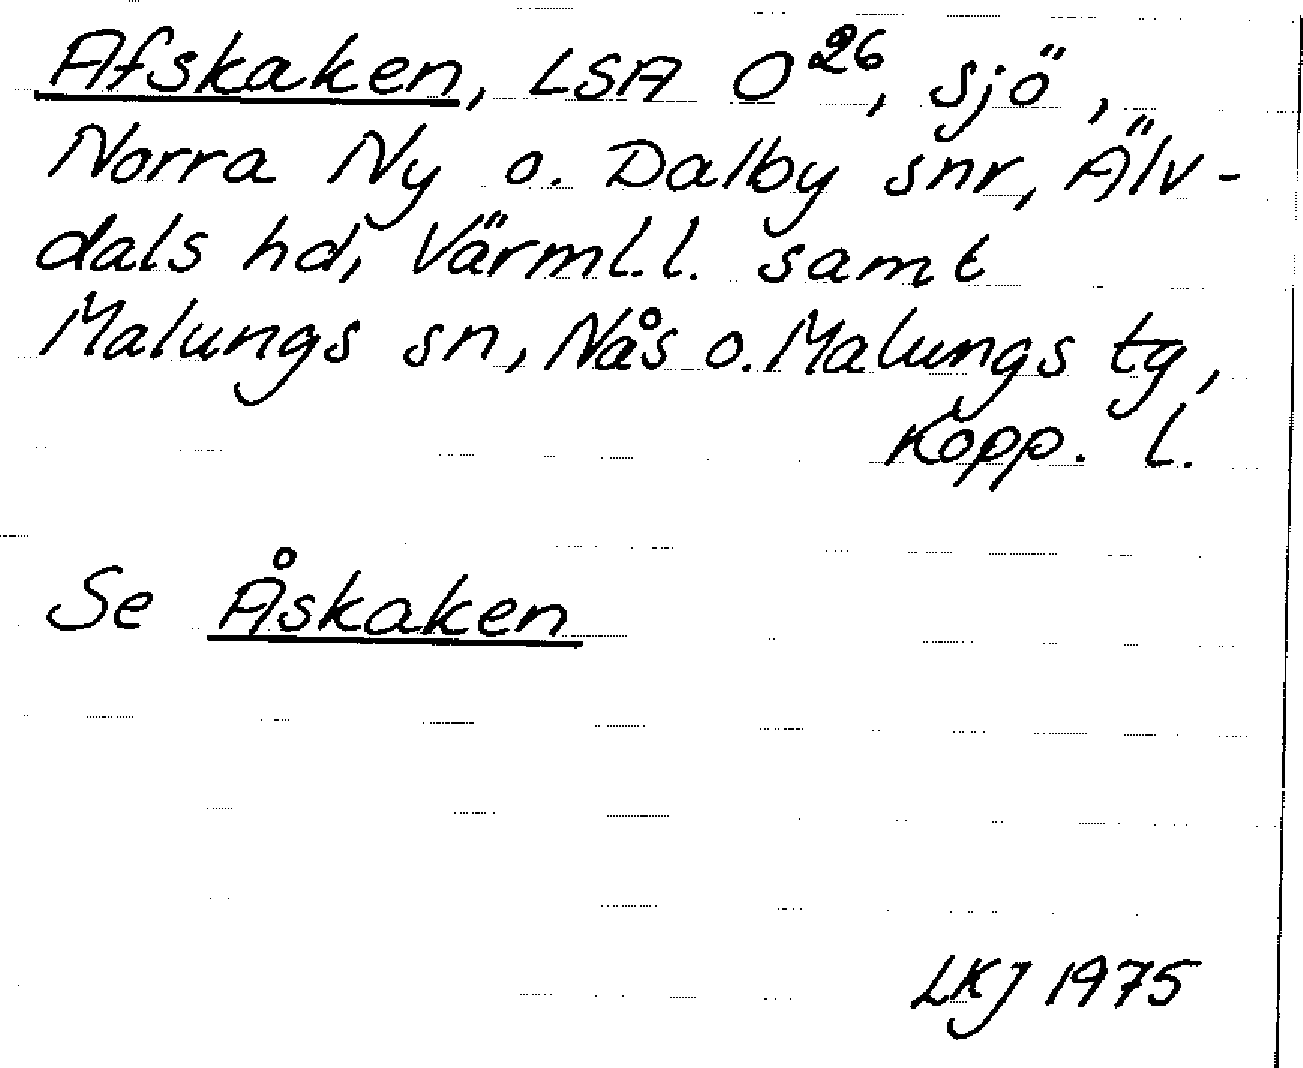 Afskaken, LSA O26, sjö,
Norra Ny o. Dalby snr, Älv-
dals hd, Värml.l. samt
Malungs sn, Nås o. Malungs tg,
Kopp. l.
Se Åskaken
LKJ 1975